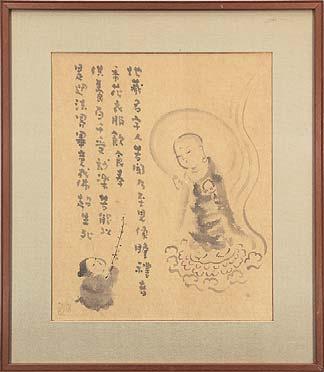 地藏名字人若聞乃至見像瞻禮者
香花衣服飲食奉
供養百千受妙樂若能以
迴法界畢竟成佛超生死